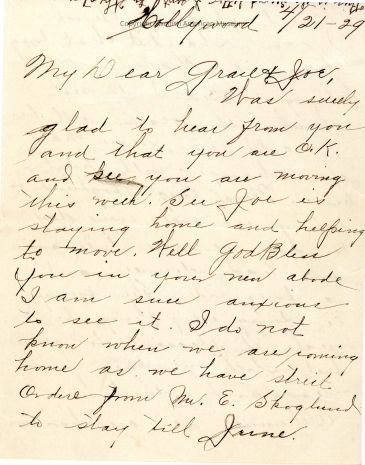 Hollywood 4/21-29
My Dear Grace & Joe,
Was surely
glad to hear from you
and that you are O.K.
and see you are moving
this week. See Joe is
staying home and helping
to move. Well God Bless
you in your new abode
I am sure anxious
to see it. I do not
know when we are coming
home as we have strict
Orders from Mr. E. Skoglund
to stay till June.